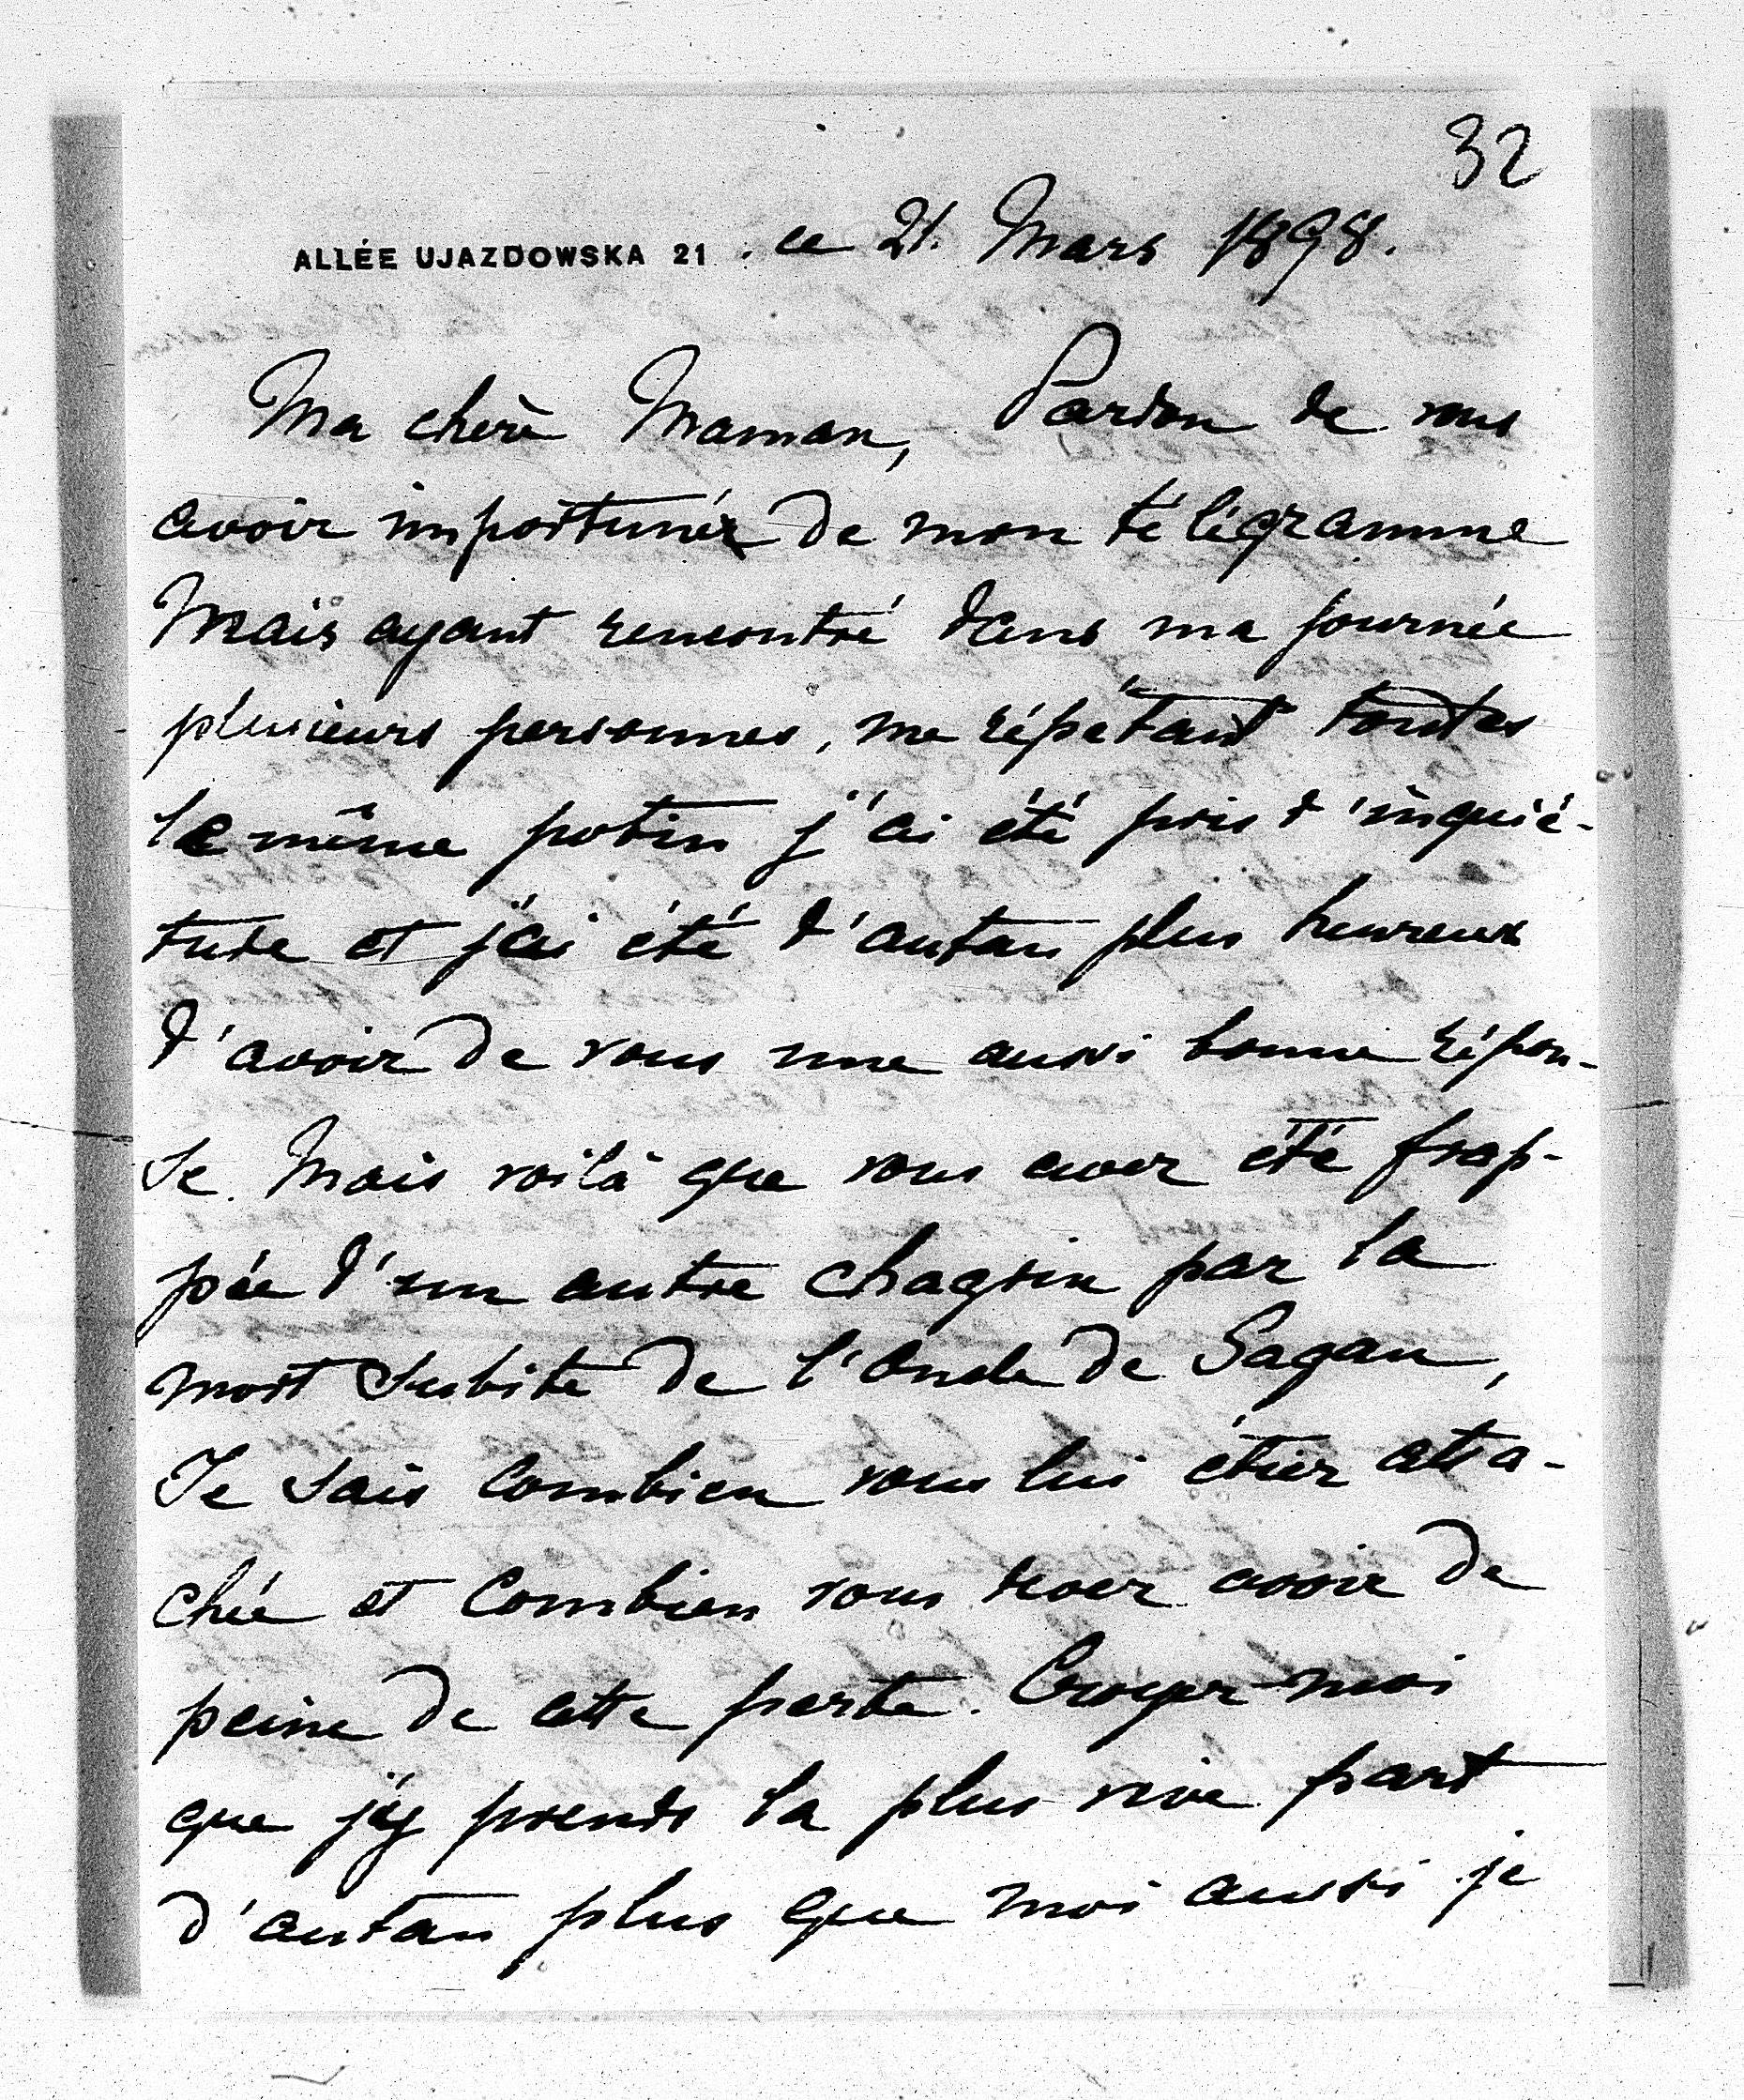 32
ALLÉE UJAZDOWSKA 21 . ce 21. Mars 1898.
Ma chère Maman, Pardon de vous
avoir importunée de mon télégramme
Mais ayant rencontré dans ma journée
plusieurs personnes, me répétant toutes
le même potin j'ai été pris d'inquié-
tude et j'ai été d'autan plus heureux
d'avoir de vous une aussi bonne répon-
se. Mais voilà que vous avez été frap-
pée d'un autre chagrin par la
mort subite de l'Oncle de Sagan,
Je sais combien vous lui étiez atta-
chée et combien vous devez avoir de
peine de cette perte. Croyez-moi
que j'y prends la plus vive part
d'autan plus que moi aussi je